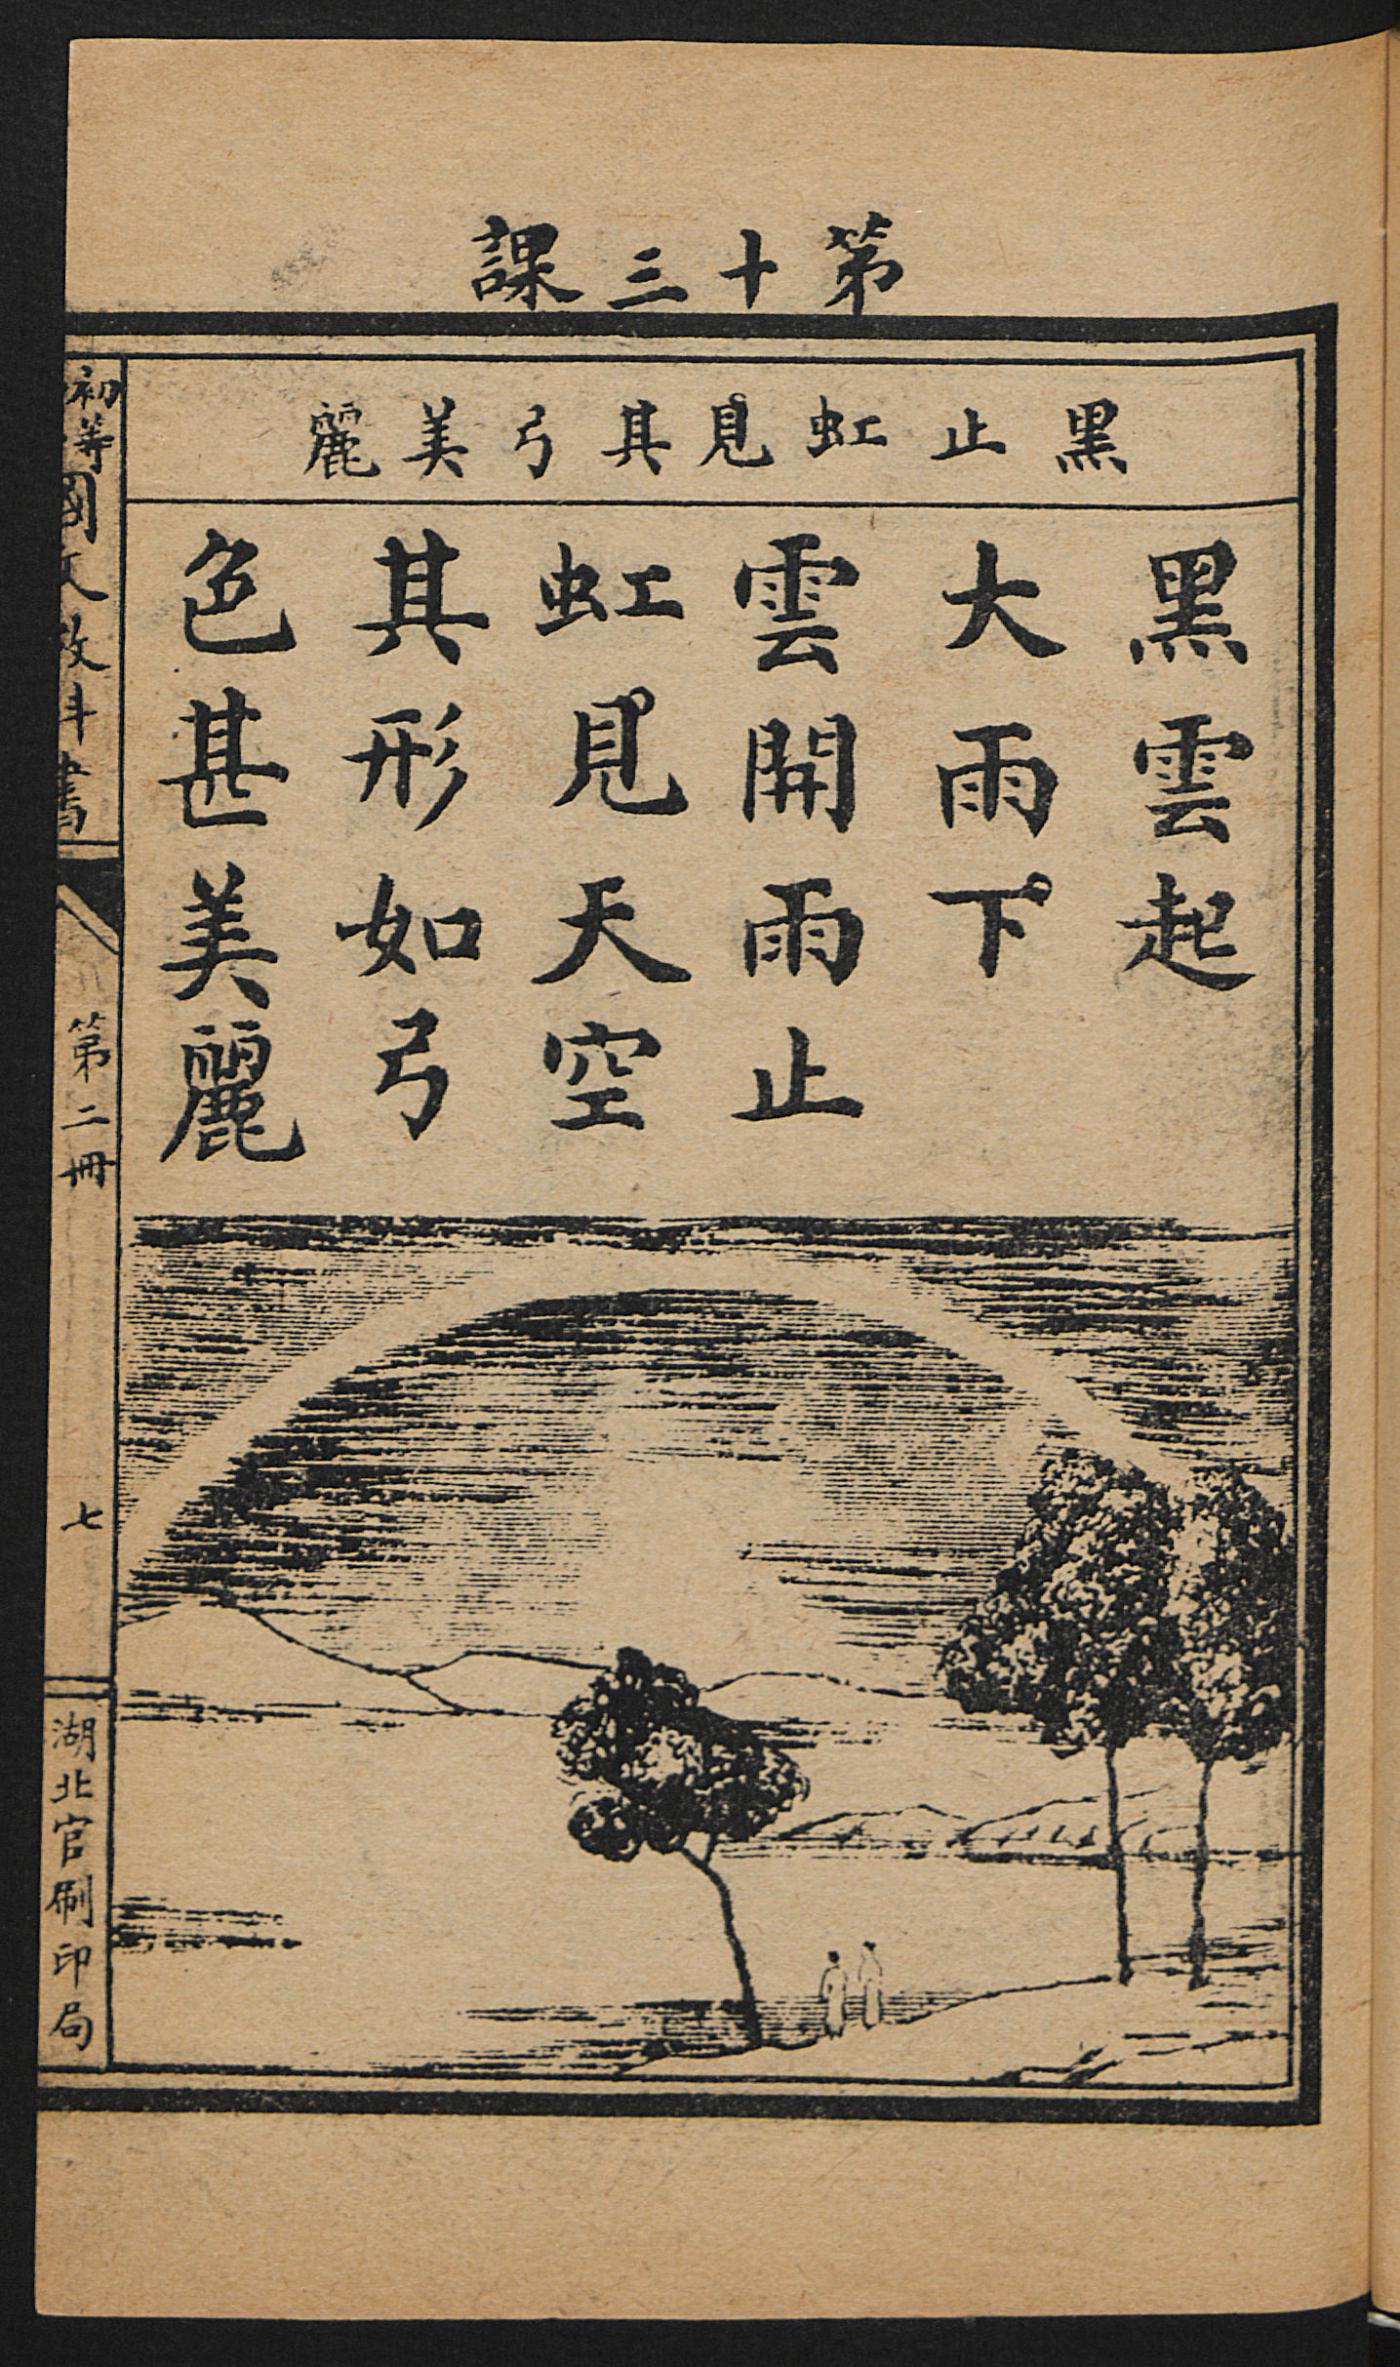 第十三課
黑止虹見其弓美麗
黑雲起
大雨下
雲開雨止
虹見天空
其形如弓
色甚美麗
初等國文教科書
第二冊
七
湖北官刷印局